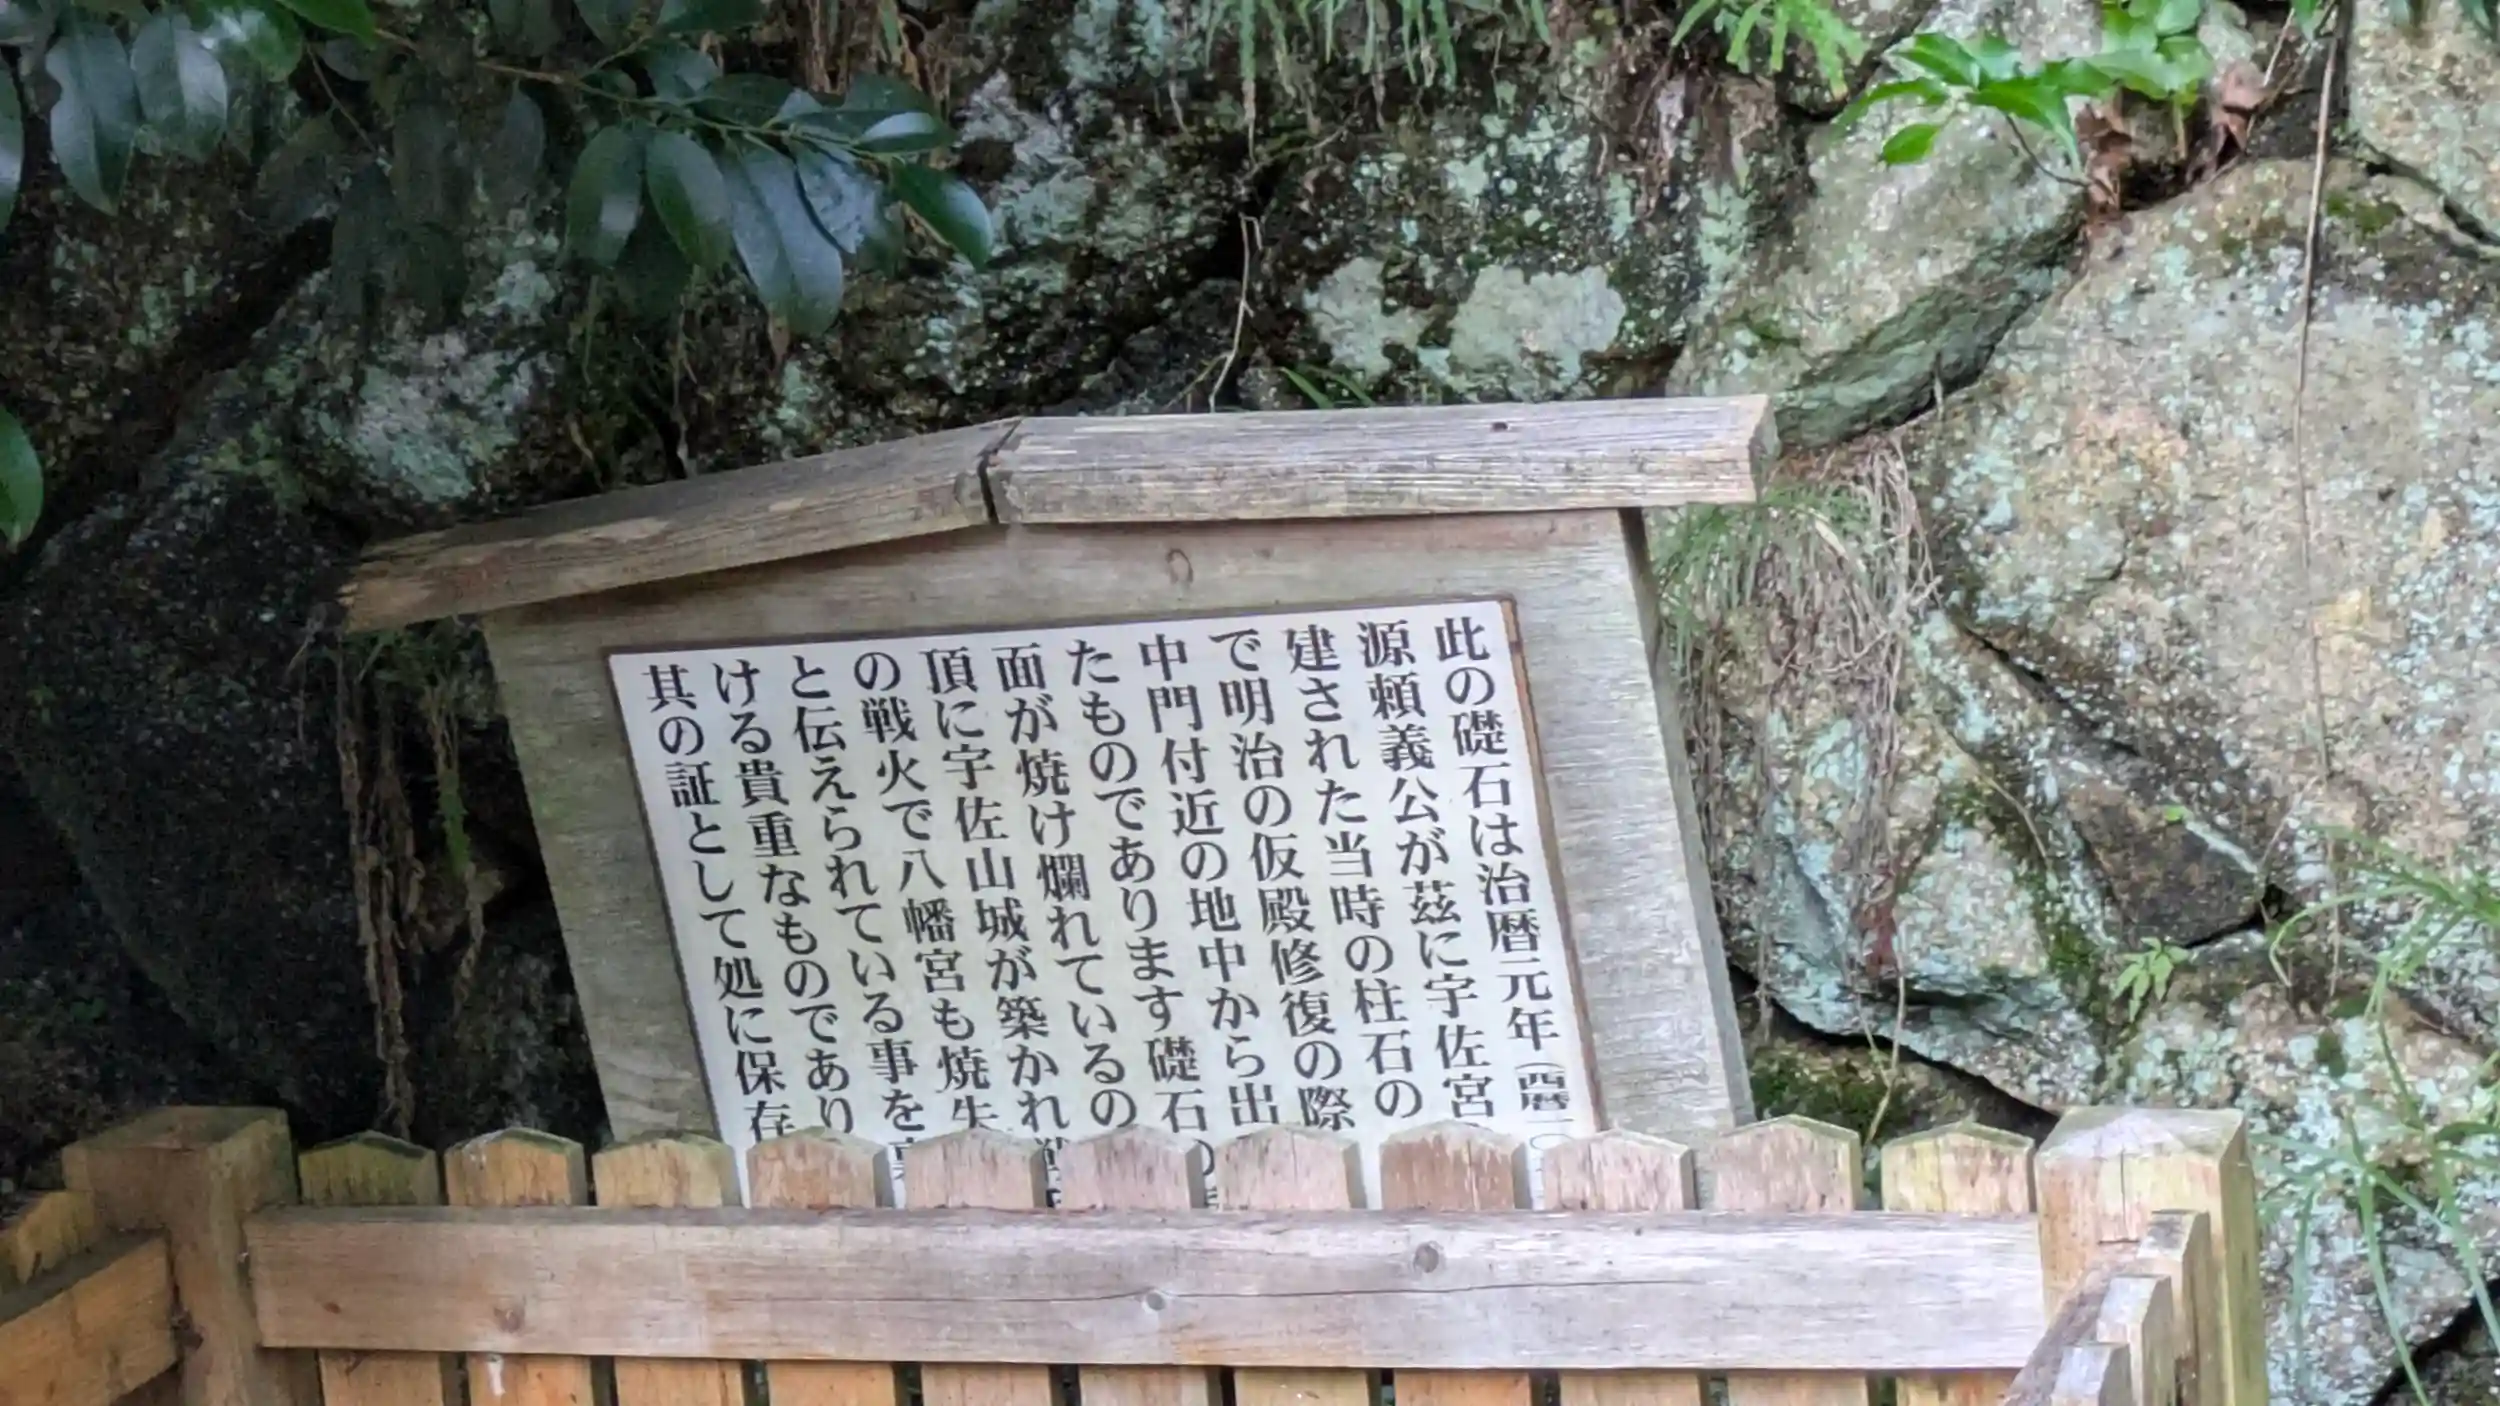 此の礎石は治暦元年（西暦一〇
源頼義公が茲に宇佐宮
建された当時の柱石の
で明治の仮殿修復の際
中門付近の地中から出
たものであります礎石の
面が焼け爛れているの
頂に宇佐山城が築かれ
の戦火で八幡宮も焼失
と伝えられている事を
ける貴重なものであり
其の証として処に保存